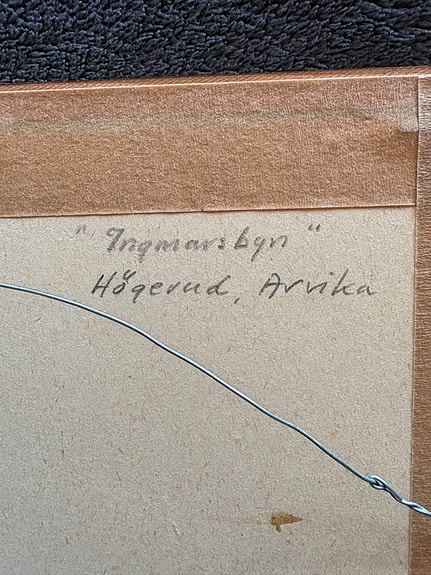 "Ingmarsbyn"
Högerud, Arvika